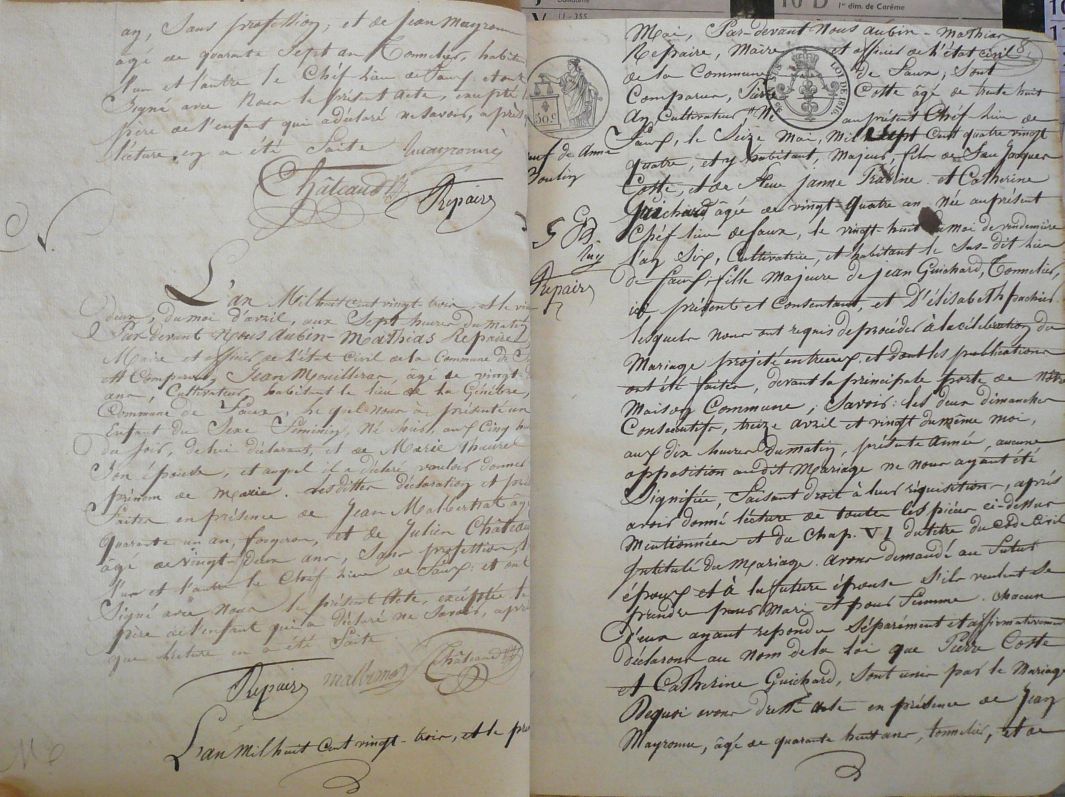 an, Sans profession, et de Jean Mayronne
âgé de quarante Sept an Tonnelier, habitan
l'un et l'autre le Chéf lieu de Faux, et ont
Signé avec Nous le présent Acte, excepté le
père de l'enfant qui a déclaré ne Savoir, après
lecture, en a été faite Mayronne
Châteaud Repaire
L'an Mil huit cent vingt trois, et le vingt
deux, du moi d'avril, aux Sept heures du matin
Par devant Nous Aubin-Mathias Repaire
Maire et officier de l'état Civil de la Commune de
Et Comparu, Jean Mouillerac, âgé de vingt
ans, Cultivateur habitant le lieu de la Génèbre,
Commune de Faux, le quel nous a présenté un
Enfant du Sexe Féminin, Né hier, aux Cinq h
du Soir, de lui déclarant, et de Marie
Son épouse, et auquel il a déclaré vouloir donner
prénom de Marie. Lesdittes déclaration et pré
faites en présence de Jean Malbernat âgé
Quarante un an, forgeron, et de Julien Châteaud
âgé de vingt-deux ans, Sans profession,
l'un et l'autre le Chef lieu de Faux; et ont
Signé avec Nous le présent Acte, exceptée le
père de l'enfant qui a déclaré ne Savoir, après
que lecture en a été faite
Repaire Châteaud
L'an mil huit cent vingt-trois, et le pre
Mai, Par-devant Nous Aubin-Mathias
Repaire, Maire et officier de l'état civil
de la Commune de Faux, Sont
Comparus, Coste âgé de trente huit
An Cultivateur Né au présent Chéf lieu de
50 c
Faux, le Seize Mai, Mil Sept Cent quatre vingt
quatre, et y habitant, Majeur, fils de feu Jacques
Coste, et de feue Janne Et Catherine
Guichard âgée de vingt-quatre an Née au présent
Chéf lieu de faux, le vingt huit du moi de vendémière
l'an Six, Cultivatrice, et habitant le Sus-dit lieu
de faux, fille Majeure de Jean Guichard, Tonnelier,
ici présent et Consentant, et D'élisabeth
lesquels Nous ont requis de procéder à la célébration du
Mariage projeté entr'eux, et dont les publications
ont été faites, devant la principale porte de notre
Maison Commune, Savoir: les deux dimanches
Consécutifs, treize avril et vingt du même moi,
aux dix heures du matin, présente Année, aucune
opposition audit Mariage ne nous ayant été
Signifiée, faisant droit à leur réquisition, après
avoir donné lecture de toutes les pièces ci-dessus
Mentionnées et du Chap. VI du titre du Code Civil
Intitulé du Mariage. Avons demandé au futur
époux et à la future épouse S'ils veulent se
prendre pour Mari et pour femme. chacun
d'eux ayant répondu Séparément et affirmativement
déclarons au Nom de la loi que Pierre Coste
et Catherine Guichard, Sont unis par le Mariage
De quoi avons dressé acte en présence de Jean
Mayronne, âgé de quarante huit ans, tonnelier, et de
de Anne
Repaire
10 D 1er dim. de Carême